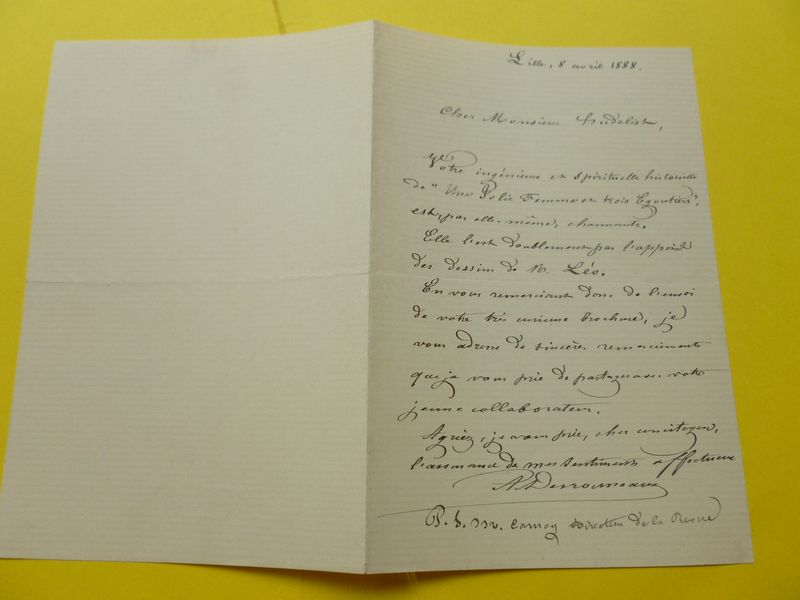 Lille, 8 avril 1888.
Cher Monsieur
Votre ingénieuse et spirituelle historiette
de "Une Polie Femme et trois Egoutiers",
est, par elle-même, charmante.
Elle l'est doublement par l'appoint
des dessins de M. Léo.
En vous remerciant donc de l'envoi
de votre très curieuse brochure, je
vous adresse de sincères remerciements
que je vous prie de partager avec votre
jeune collaborateur.
Agréez, je vous prie, cher concitoyen,
l'assurance de mes sentiments affectueux
ADesrousseaux
P. S. Carnoy Directeur de la Revue